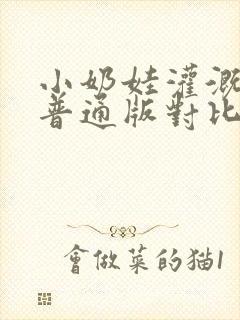 小奶娃灌溉
普通版對比
會做菜的猫1